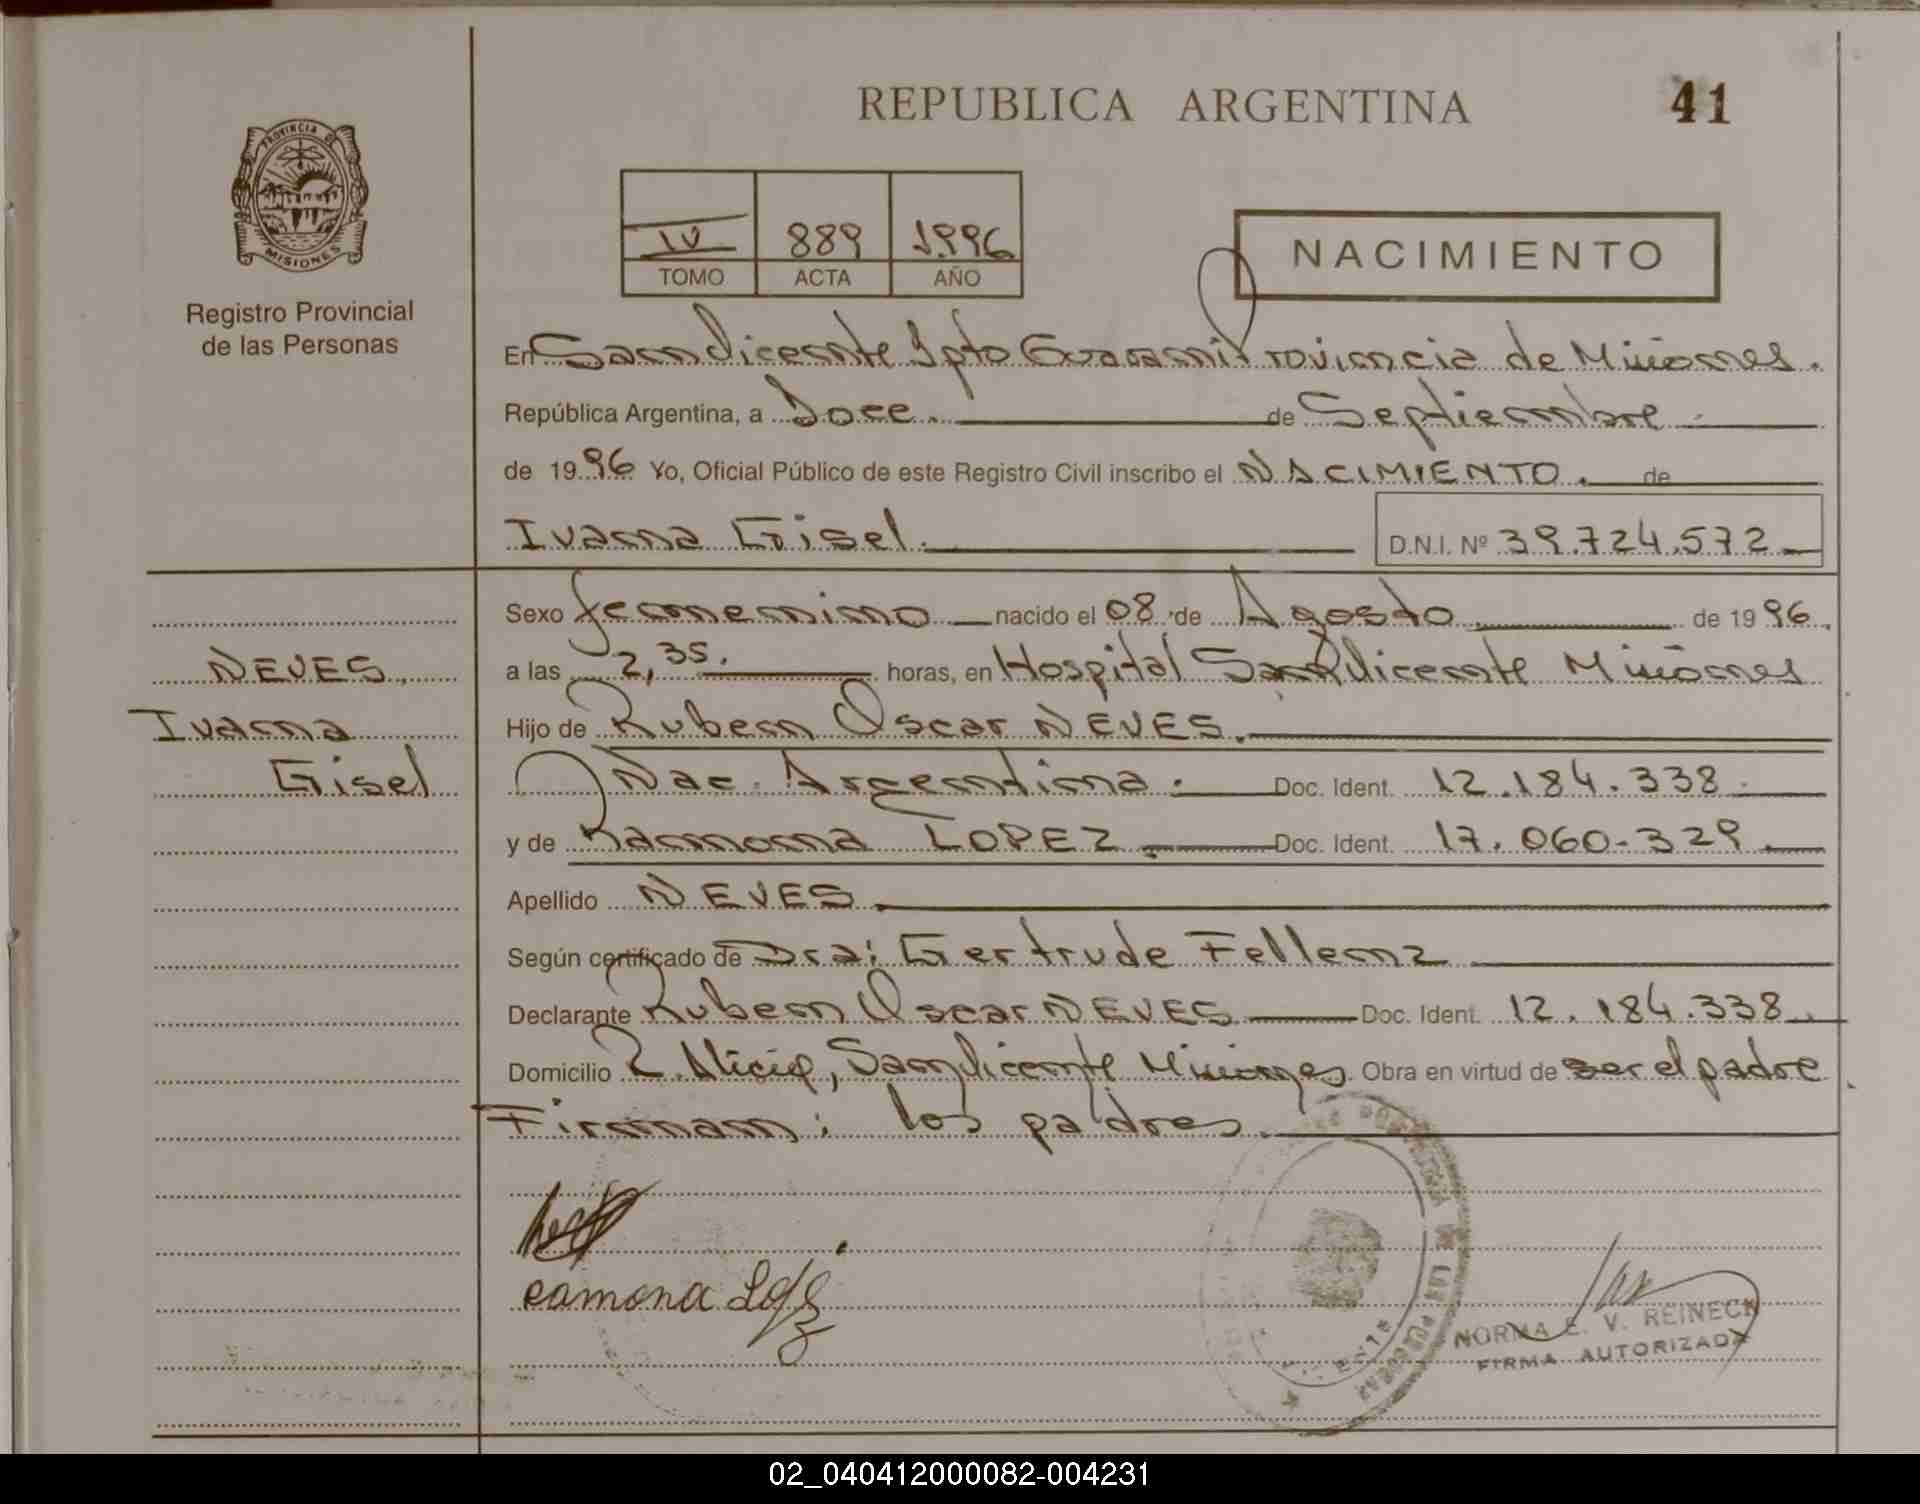 REPUBLICA ARGENTINA
41
PROVINCIA DE
MISIONES
Registro Provincial
de las Personas
IV 889 1996
TOMO ACTA AÑO
NACIMIENTO
En San Vicente Dpto Guarani Provincia de Misiones.
República Argentina, a Doce. de Septiembre.
de 1996 Yo, Oficial Público de este Registro Civil inscribo el NACIMIENTO. de
Ivana Gisel. D.N.I. Nº 39.724.572
Sexo femenino nacido el 08 de Agosto de 1996.
NEVES
a las 2,35. horas, en Hospital San Vicente Misiones
Ivana
Hijo de Ruben Oscar NEVES.
Gisel
Nac. Argentina. Doc. Ident. 12.184.338.
y de Ramona LOPEZ. Doc. Ident. 17.060.329.
Apellido NEVES.
Según certificado de Dra: Gertrude Fellenz
Declarante Ruben Oscar NEVES Doc. Ident. 12.184.338.
Domicilio San Vicente Misiones Obra en virtud de ser el padre.
Firman: los padres.
Ramona Lopez
NORMA E. V. REINECK
FIRMA AUTORIZADA
02_040412000082-004231